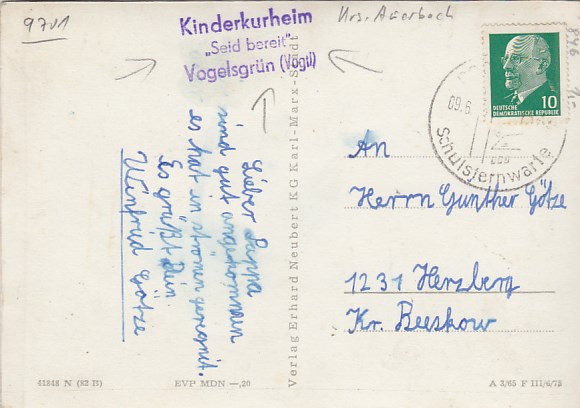 9701
Kinderkurheim
„Seid bereit"
Vogelsgrün (Vogtl)
Krs. Auerbach
DEUTSCHE
DEMOKRATISCHE REPUBLIK
10
09.6
Schulsternwarte
Lieber Pappa
sind gut angekommen
es hat in strömen geregnet.
Es grüßt Dein
Winfried Götze
Verlag Erhard Neubert KG Karl-Marx-Stadt
An
Herrn Gunther Götze
1231 Herzberg
Kr. Beeskow
41848 N (82 B)
EVP MDN —,20
A 3/65 F III/6/73